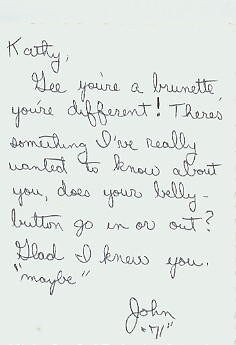 Kathy,
Gee you're a brunette,
you're different! There's
something I've really
wanted to know about
you, does your belly-
button go in or out?
Glad I knew you.
"maybe"
John
"71"